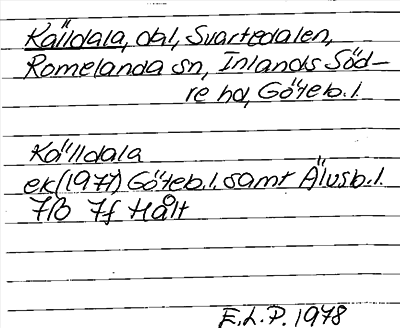 Källdala, obl, Svartedalen,
Romelanda sn, Inlands Söd-
re hd, Göteb.l.
Källdala
ek(1977) Göteb.l. samt Älvsb.l.
7B 7f Hålt
E.L.P. 1978